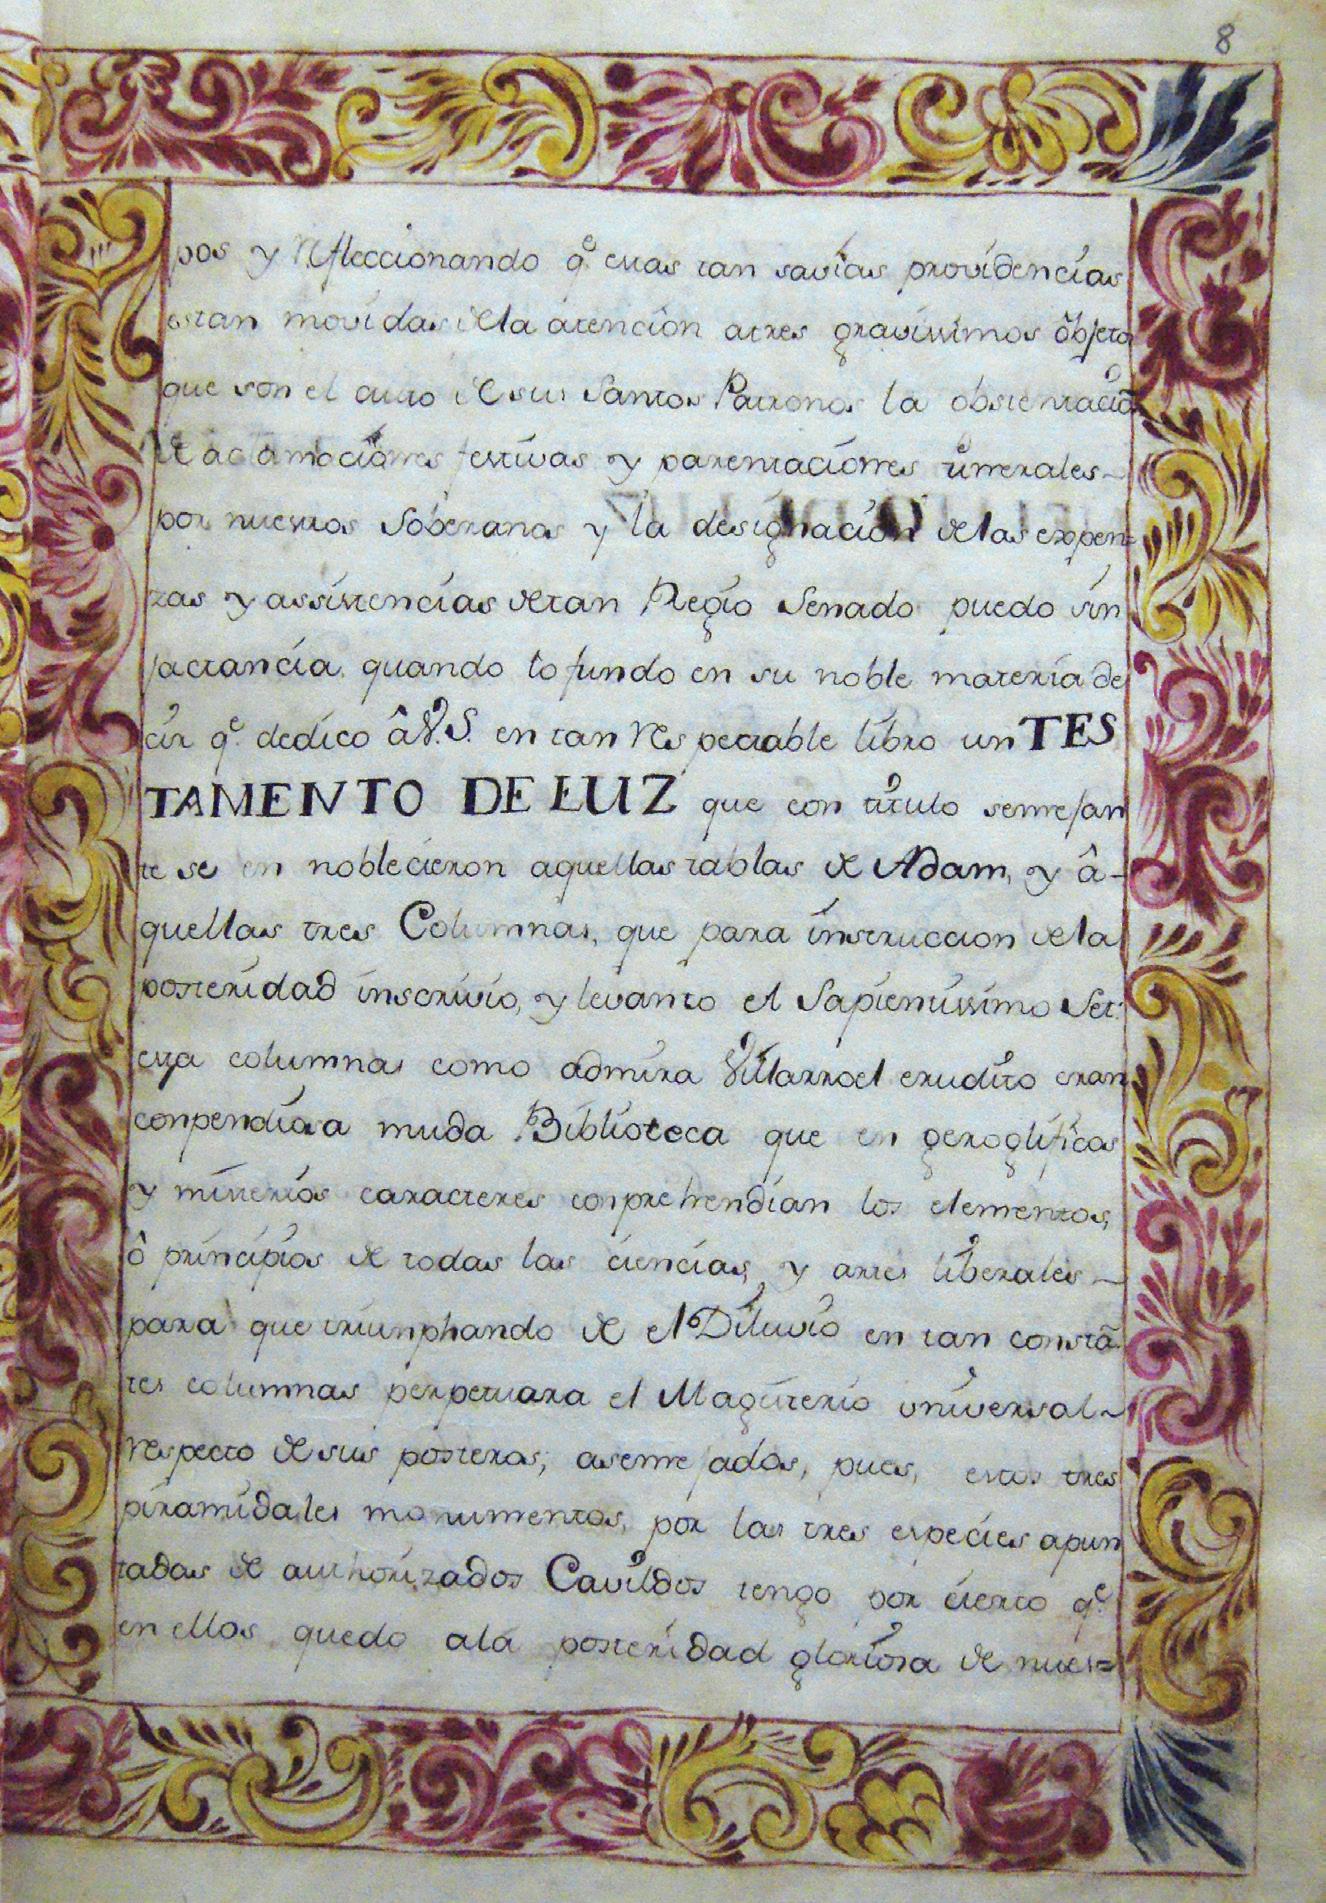 8
pos y reflecciónando q.e estas tan savias providencias
estan movidas de la atencion a tres gravissimos objeto
que son el culto de sus Santos Patronos la obstentacio
de aclamaciones festivas y parentaciones funerales
por nuestros Soberanos y la designacion de las expen=
zas y assistencias de tan Regio Senado puedo sin
jactancia quando lo fundo en su noble materia de
cir q.e dedico â V.S. en tan respectable libro un TES
TAMENTO DE LUZ que con titulo semejan
te se en noblecieron aquellas tablas de Adam, y â-
quellas tres Columnas, que para instruccion de la
posteridad inscrivio, y levanto el Sapientissimo Set:
cuya columnas como admira Villarroel erudito eran
conpendiosa muda Biblioteca que en geroglificos
y misterios caracteres conprehendian los elementos,
ô principios de todas las ciencias, y artes liberales-
para que triunphando de el Diluvio en tan constã
tes columnas perpetuara el Magisterio universal-
respecto de sus posteros; asemejados, pues, estos tres
piramidales monumentos, por las tres especies apun
tadas de authorizados Cavildos tengo por cierto q.e
en ellos quedo a la posteridad gloriosa de nues=